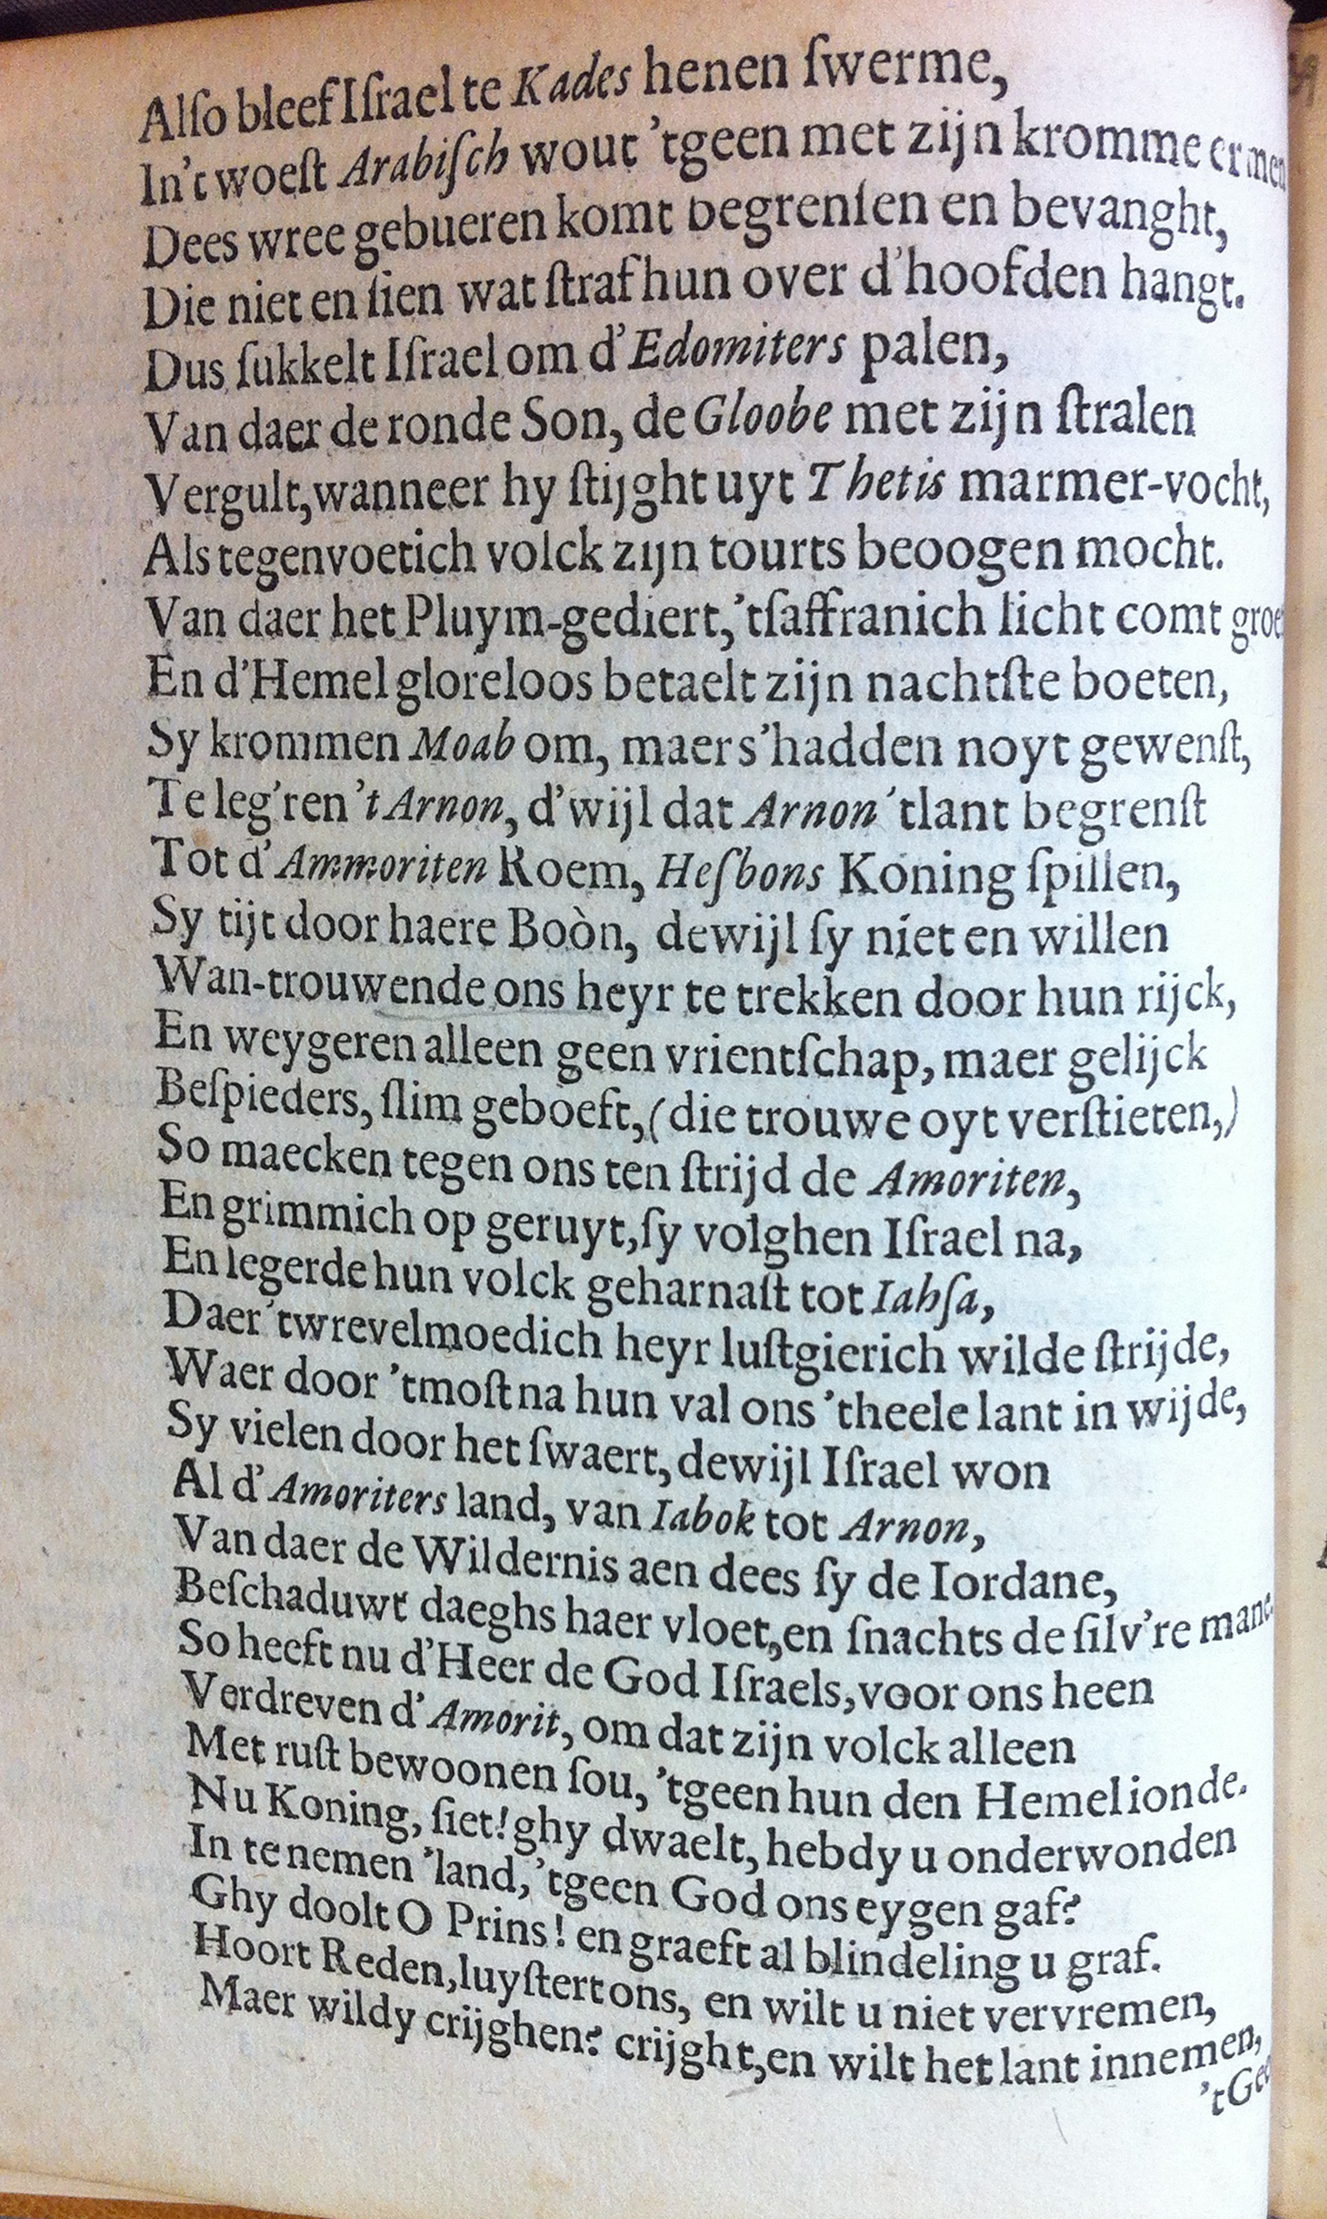 Alſo bleef Iſrael te Kades henen ſwerme,
In't woeſt Arabiſch wout 'tgeen met zijn kromme ermen
Dees wree gebueren komt begrenſen en bevanght,
Die niet en ſien wat ſtraf hun over d'hoofden hangt.
Dus ſukkelt Iſrael om d'Edomiters palen,
Van daer de ronde Son, de Gloobe met zijn ſtralen
Vergult, wanneer hy ſtijght uyt Thetis marmer-vocht,
Als tegenvoetich volck zijn tourts beoogen mocht.
Van daer het Pluym-gediert, 'tſaffranich licht comt
En d'Hemel gloreloos betaelt zijn nachtſte boeten,
Sy krommen Moab om, maer s'hadden noyt gewenſt,
Te leg'ren 't Arnon, d'wijl dat Arnon 'tlant begrenſt
Tot d'Ammoriten Roem, Heſbons Koning ſpillen,
Sy tijt door haere Boòn, dewijl ſy niet en willen
Wan-trouwende ons heyr te trekken door hun rijck,
En weygeren alleen geen vrientſchap, maer gelijck
Beſpieders, ſlim geboeft, (die trouwe oyt verſtieten,)
So maecken tegen ons ten ſtrijd de Amoriten,
En grimmich op geruyt, ſy volghen Iſrael na,
En legerde hun volck geharnaſt tot Iahſa,
Daer 'twrevelmoedich heyr luſtgierich wilde ſtrijde,
Waer door 'tmoſt na hun val ons 'theele lant in wijde,
Sy vielen door het ſwaert, dewijl Iſrael won
Al d'Amoriters land, van Iabok tot Arnon,
Van daer de Wildernis aen dees ſy de Iordane,
Beſchaduwt daeghs haer vloet, en ſnachts de ſilv're mane.
So heeft nu d'Heer de God Iſraels, voor ons heen
Verdreven d'Amorit, om dat zijn volck alleen
Met ruſt bewoonen ſou, 'tgeen hun den Hemel ionde.
Nu Koning, ſiet! ghy dwaelt, hebdy u onderwonden
In te nemen 'land, 'tgeen God ons eygen gaf?
Ghy doolt O Prins! en graeft al blindeling u graf.
Hoort Reden, luyſtert ons, en wilt u niet vervremen,
Maer wildy crijghen? crijght, en wilt het lant innemen,